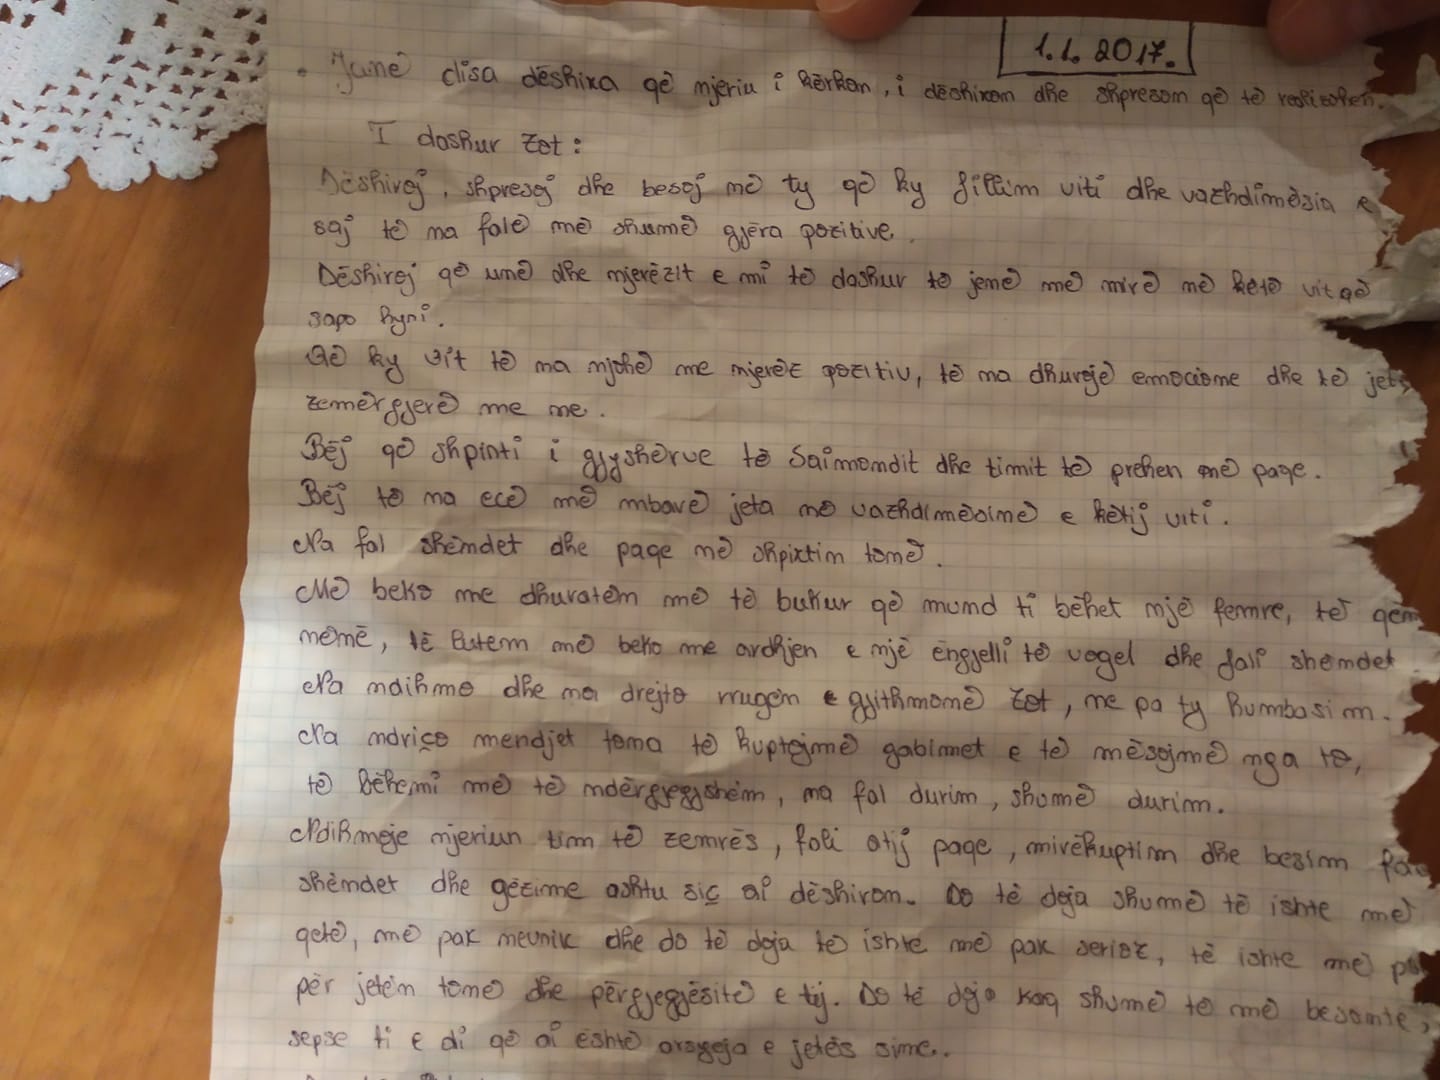 1.1.2017.
Janë disa dëshira që njeriu i kërkon, i dëshiron dhe shpreson që të realizohen.
I dashur Zot:
Dëshiroj, shpresoj dhe besoj më ty që ky fillim viti dhe vazhdimësia e
saj të na falë më shumë gjëra pozitive.
Dëshiroj që unë dhe njerëzit e mi të dashur të jemë më mirë në këtë vit që
sapo hyni.
Që ky vit të na njohë me njerëz pozitiv, të na dhurojë emocione dhe të jetë
zemërgjerë me ne.
Bëj që shpirti i gjyshërve të Saimondit dhe timit të prehen në paqe.
Bëj të na ecë më mbarë jeta në vazhdimësinë e këtij viti.
Na fal shëndet dhe paqe në shpirtin tonë.
Më beko me dhuratën më të bukur që mund ti bëhet një femre, të
nënë, të lutem më beko me ardhjen e një ëngjelli të vogël dhe fali shëndet
Na ndihmo dhe na drejto rrugën e gjithmonë Zot, ne pa ty humbasim.
Na ndriço mendjet tona të kuptojmë gabimet e të mësojmë nga to,
të bëhemi më të ndërgjegjshëm, na fal durim, shumë durim.
Ndihmoje njeriun tim të zemrës, fali atij paqe, mirëkuptim dhe besim
shëndet dhe gëzime ashtu siç ai dëshiron. Do të doja shumë të ishte më
qetë, më pak nevrik dhe do të doja të ishte më pak serioz, të ishte më
për jetën tonë dhe përgjegjësitë e tij. Do të doja kaq shumë të më besonte,
sepse ti e di që ai është arsyeja e jetës sime..